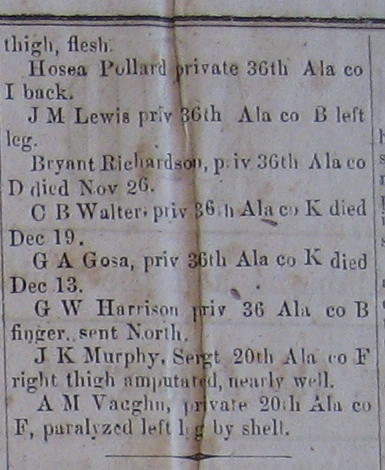 thigh, flesh.
Hosea Pollard private 36th Ala co
I back.
J M Lewis priv 36th Ala co B left
leg.
Bryant Richardson, priv 36th Ala co
D died Nov 26.
C B Walters priv 36th Ala co K died
Dec 19.
G A Gosa, priv 36th Ala co K died
Dec 13.
G W Harrison priv 36 Ala co B
finger, sent North.
J K Murphy, Sergt 20th Ala co F
right thigh amputated, nearly well.
A M Vaeghn, private 20th Ala co
F, paralyzed left leg by shell.